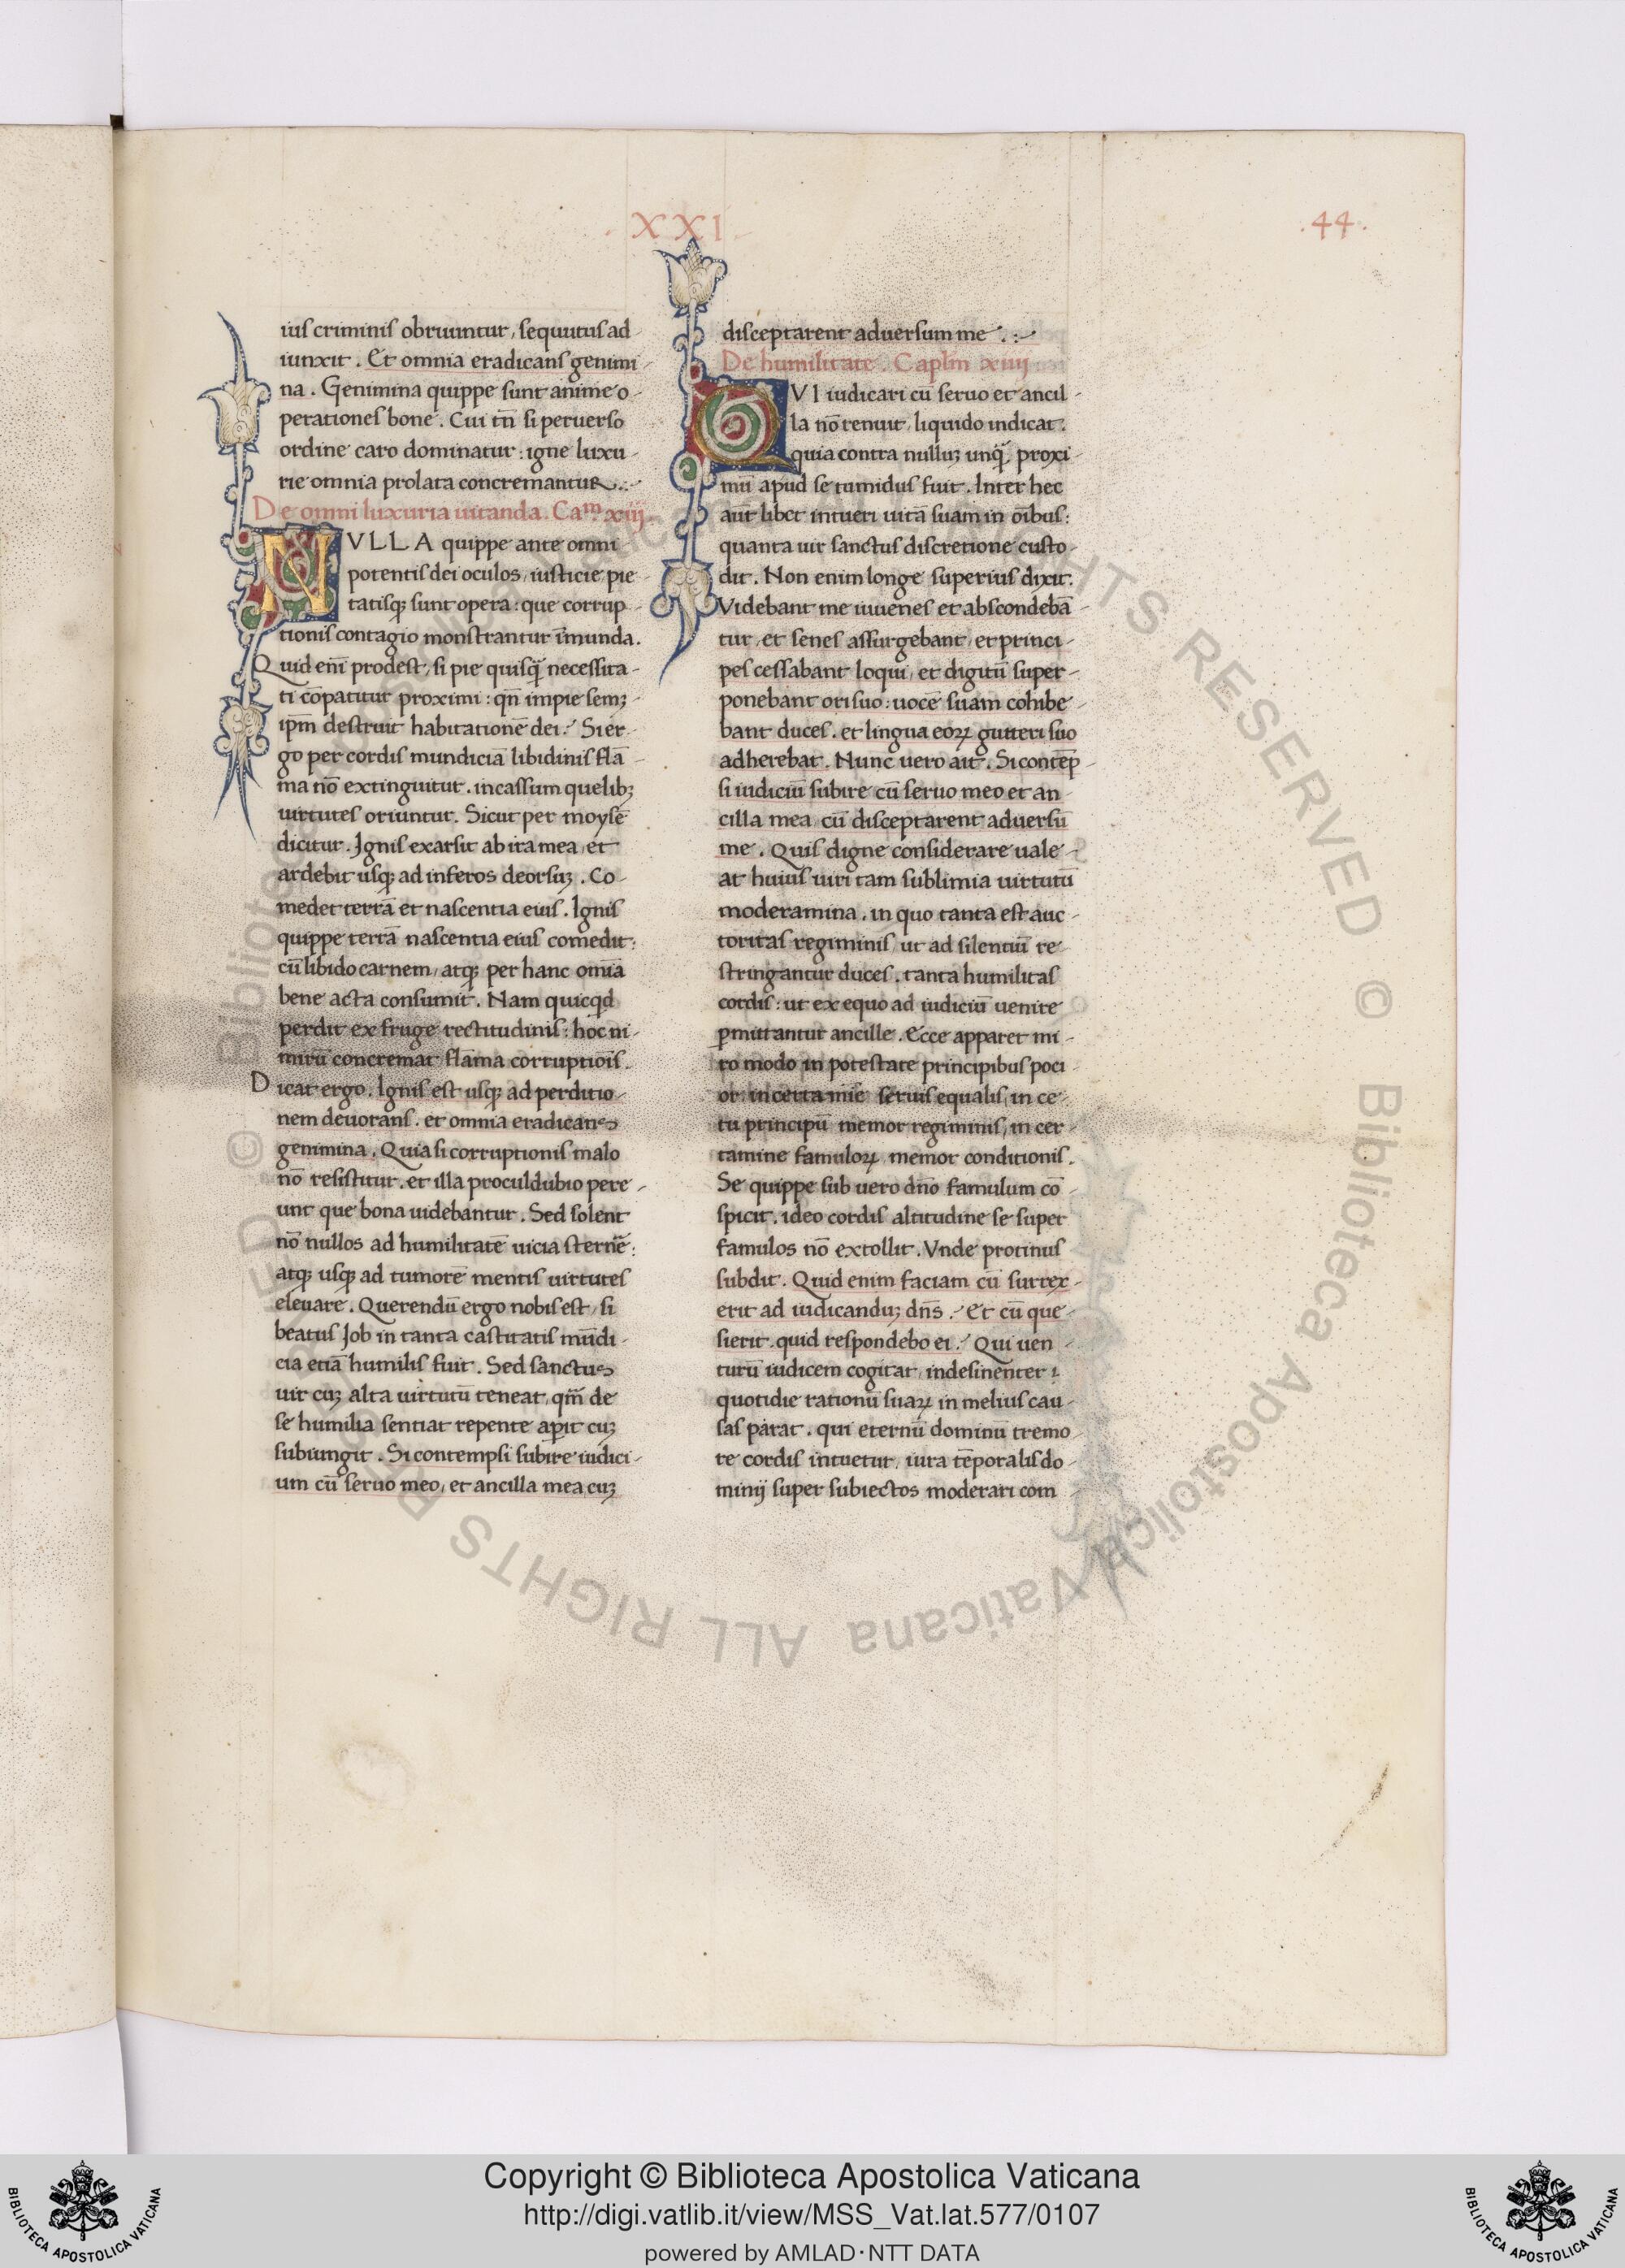 . XXI .
. 44 .
ius criminis obruuntur, sequutus ad
iunxit . Et omnia eradicans genimi
na . Genimina quippe sunt anime o
perationes bone . Cui tn̄ si peruerso
ordine caro dominatur : igne luxu
rie omnia prolata concremantur .:
De omni luxuria uitanda . Caᵐ. xiij.
NVLLA quippe ante omni
potentis dei oculos, iusticie pie
tatisqꝫ sunt opera : que corrup
tionis contagio monstrantur īmunda.
Quid eni͞ prodest, si pie quisq̄ necessita
ti co͞patitur proximi : qn̄ impie semꝫ
ipm̄ destruit habitatione͞ dei ? Si er
go per cordis mundicia͞ libidinis fla͞
ma no͞ extinguitur . incassum quelibꝫ
uirtutes oriuntur . Sicut per moyse͞
dicitur . Ignis exarsit ab ira mea, et
ardebit usqꝫ ad inferos deorsuꝫ . Co
medet terra͞ et nascentia eius . Ignis
quippe terra͞ nascentia eius comedit :
cu͞ libido carnem, atqꝫ per hanc omi͞a
bene acta consumit . Nam quicqd
perdit ex fruge rectitudinis : hoc ni
miru͞ concremat fla͞ma corruptiois͞ .
Dicat ergo . Ignis est usqꝫ ad perditio
nem deuorans . et omnia eradicans
genimina . Quia si corruptionis malo
no͞ resistitur . et illa proculdubio pere
unt que bona uidebantur . Sed solent
no͞ nullos ad humilitate͞ uicia sterne͞ :
atqꝫ usqꝫ ad tumore͞ mentis uirtutes
eleuare . Querendu͞ ergo nobis est, si
beatus Iob in tanta castitatis mu͞di
cia etia͞ humilis fuit . Sed sanctus
uir cuꝫ alta uirtutu͞ teneat, qm̄ de
se humilia sentiat repente aꝑit cuꝫ
subiungit . Si contempsi subire iudici
um cu͞ seruo meo, et ancilla mea, cuꝫ
disceptarent aduersum me .:
De humilitate . Caplm̄ xiiij
QVI iudicari cu͞ seruo et ancil
la no͞ renuit, liquido indicat .
quia contra nulluꝫ unq̄ proxi
mu͞ apud se tumidus fuit . Inter hec
aut͞ libet intueri uita͞ suam in oi͞bus :
quanta uir sanctus discretione custo
dit . Non enim longe superius dixit .
Videbant me iuuenes et abscondeba͞
tur, et senes assurgebant, et princi
pes cessabant loqui, et digitu͞ super
ponebant ori suo : uoce͞ suam cohibe
bant duces . et lingua eoꝝ gutteri suo
adherebat . Nunc uero ait . Si conte͞p
si iudiciu͞ subire cu͞ seruo meo et an
cilla mea cu͞ disceptarent aduersu͞
me . Quis digne considerare uale
at huius uiri tam sublimia uirtutu͞
moderamina . in quo tanta est auc
toritas regiminis, ut ad silentiu͞ re
stringantur duces . tanta humilitas
cordis : ut ex equo ad iudiciu͞ uenire
ꝑmittantur ancille . Ecce apparet mi
ro modo in potestate principibus poci
or in certamie͞ seruis equalis, in ce
tu principu͞ memor regiminis, in cer
tamine famuloꝝ memor conditionis .
Se quippe sub uero dn̄o famulum co͞
spicit . ideo cordis altitudine se super
famulos no͞ extollit . Vnde protinus
subdit . Quid enim faciam cu͞ surrex
erit ad iudicanduꝫ dn̄s ? Et cu͞ que
sierit . quid respondebo ei ? Qui uen
turu͞ iudicem cogitat, indesinenter ⁊
quotidie rationu͞ suaꝝ in melius cau
sas parat . qui eternu͞ dominu͞ tremo
re cordis intuetur, iura te͞poralis do
minij super subiectos moderari com
Copyright © Biblioteca Apostolica Vaticana
http://digi.vatlib.it/view/MSS_Vat.lat.577/0107
powered by AMLAD·NTT DATA
BIBLIOTECA APOSTOLICA VATICANA
BIBLIOTECA APOSTOLICA VATICANA